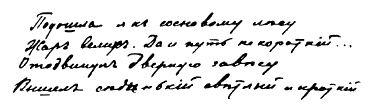 Подошла я къ сосновому лѣсу
Жаръ великъ. Да и путь не короткій...
Отодвинулъ дверную завѣсу
Вышелъ сѣденькій свѣтлый и кроткій